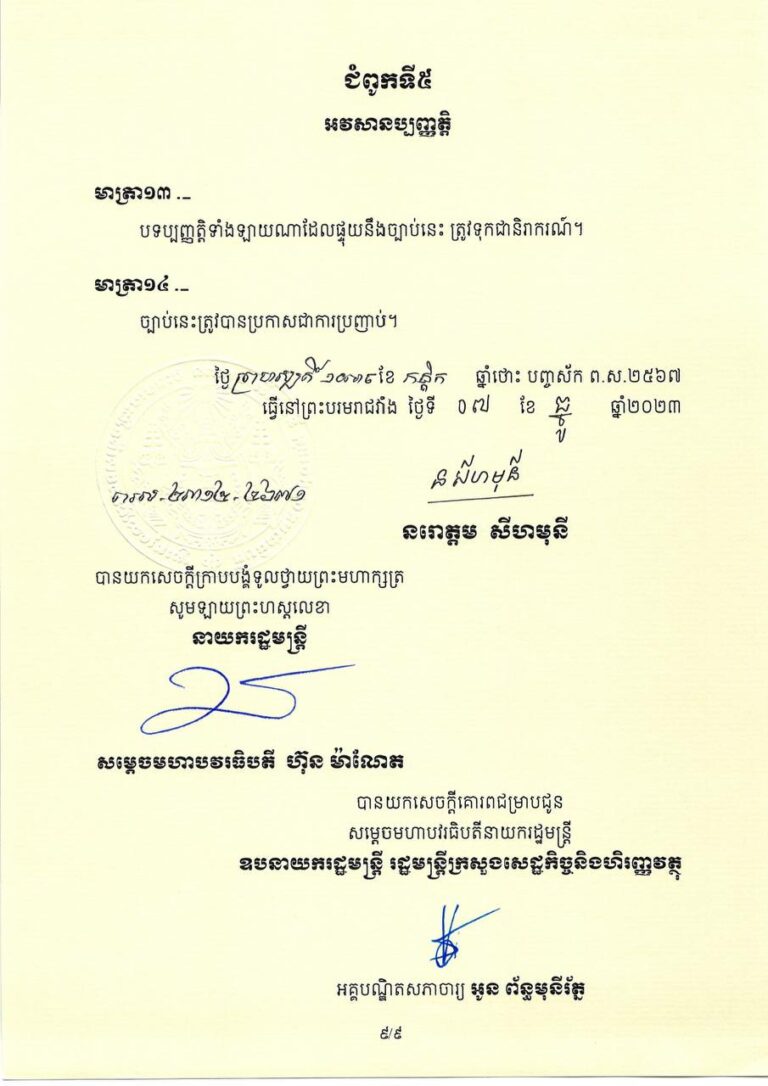 ជំពូកទី៥
អវសានប្បញ្ញត្តិ
មាត្រា១៣ ._
បទប្បញ្ញត្តិទាំងឡាយណាដែលផ្ទុយនឹងច្បាប់នេះ ត្រូវទុកជានិរាករណ៍។
មាត្រា១៤ ._
ច្បាប់នេះត្រូវបានប្រកាសជាការប្រញាប់។
ថ្ងៃ ខែ កត្តិក ឆ្នាំថោះ បញ្ចស័ក ព.ស.២៥៦៧
ធ្វើនៅព្រះបរមរាជវាំង ថ្ងៃទី ០៧ ខែ ធ្នូ ឆ្នាំ២០២៣
ន សីហមុនី
នរោត្តម សីហមុនី
បានយកសេចក្តីក្រាបបង្គំទូលថ្វាយព្រះមហាក្សត្រ
សូមឡាយព្រះហស្តលេខា
នាយករដ្ឋមន្ត្រី
សម្តេចមហាបវរធិបតី ហ៊ុន ម៉ាណែត
បានយកសេចក្តីគោរពជម្រាបជូន
សម្តេចមហាបវរធិបតីនាយករដ្ឋមន្ត្រី
ឧបនាយករដ្ឋមន្ត្រី រដ្ឋមន្ត្រីក្រសួងសេដ្ឋកិច្ចនិងហិរញ្ញវត្ថុ
អគ្គបណ្ឌិតសភាចារ្យ អូន ព័ន្ធមុនីរ័ត្ន
៩/៩